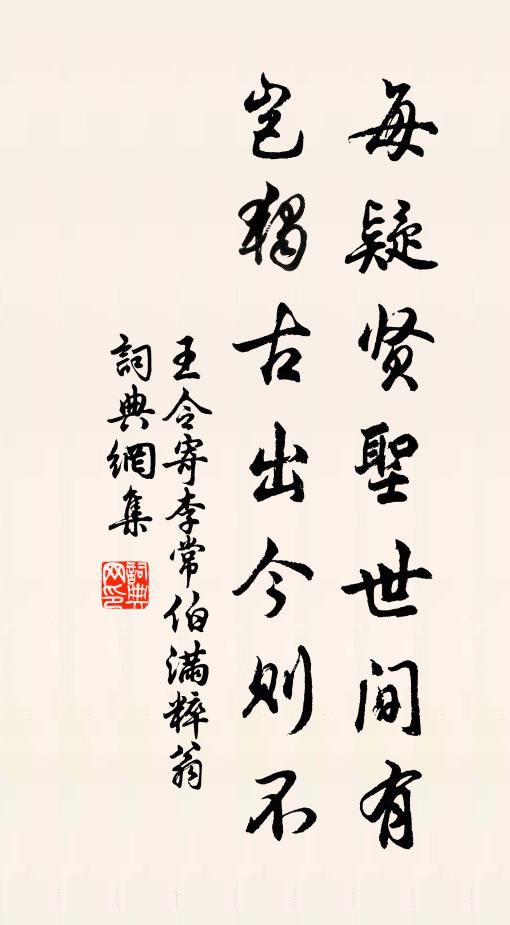 每疑贤聖世间有
岂独古出今则不
王令寄李常伯满粹翁
詞典網集
詞典网印